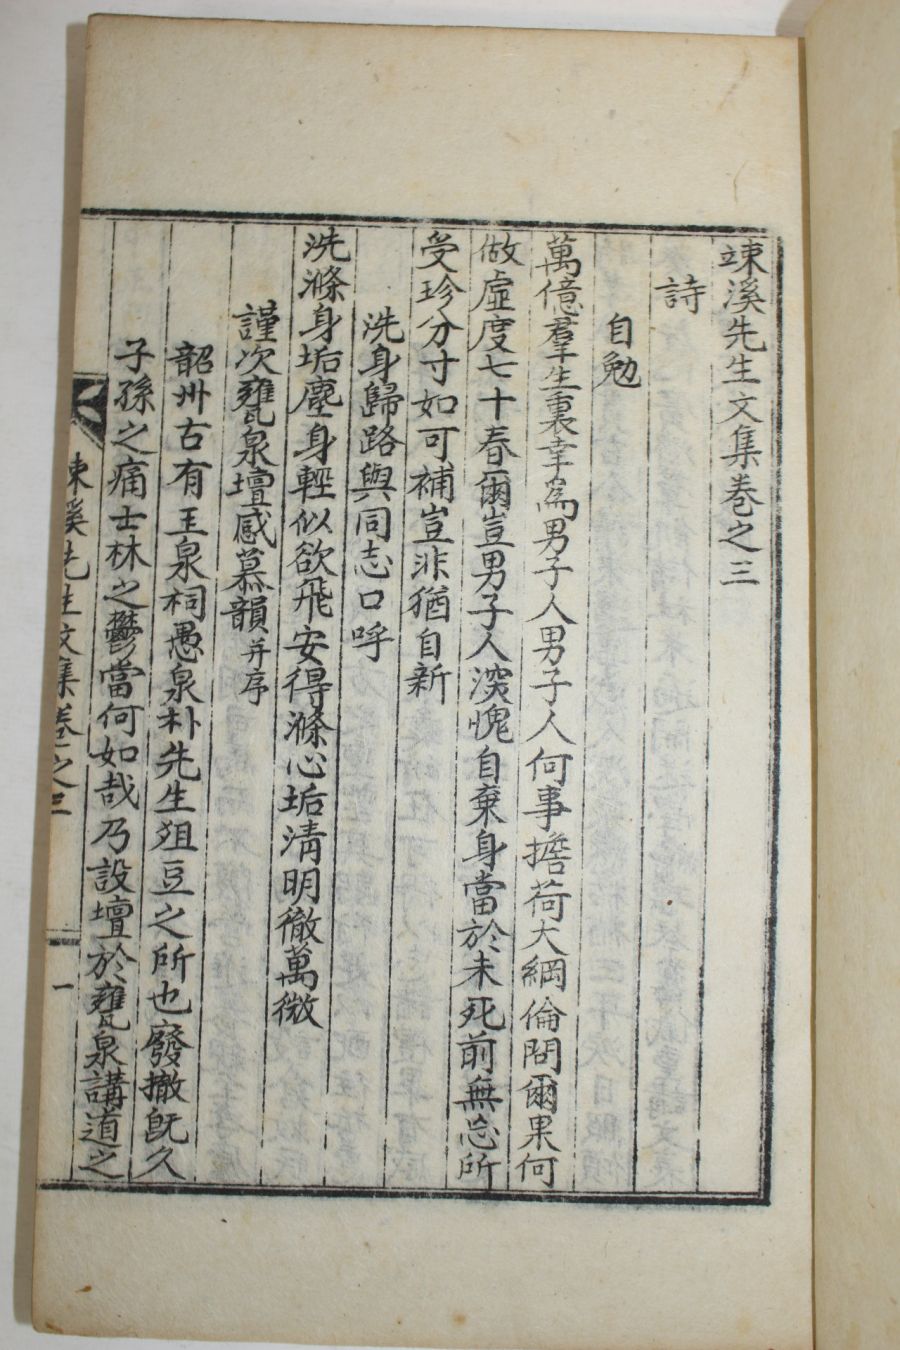 竦溪先生文集卷之三
詩
自勉
萬億羣生裏幸爲男子人男子人何事擔荷大綱倫問爾果何
做虛度七十春爾豈男子人深愧自棄身當於未死前無忝所
受珍分寸如可補豈非猶自新
洗身歸路與同志口呼
洗滌身垢塵身輕似欲飛安得滌心垢淸明徹萬微
謹次甕泉壇感慕韻并序
韶州古有王泉祠愚泉朴先生俎豆之所也廢撤旣久
子孫之痛士林之鬱當何如哉乃設壇於甕泉講道之
竦溪先生文集卷之三
一